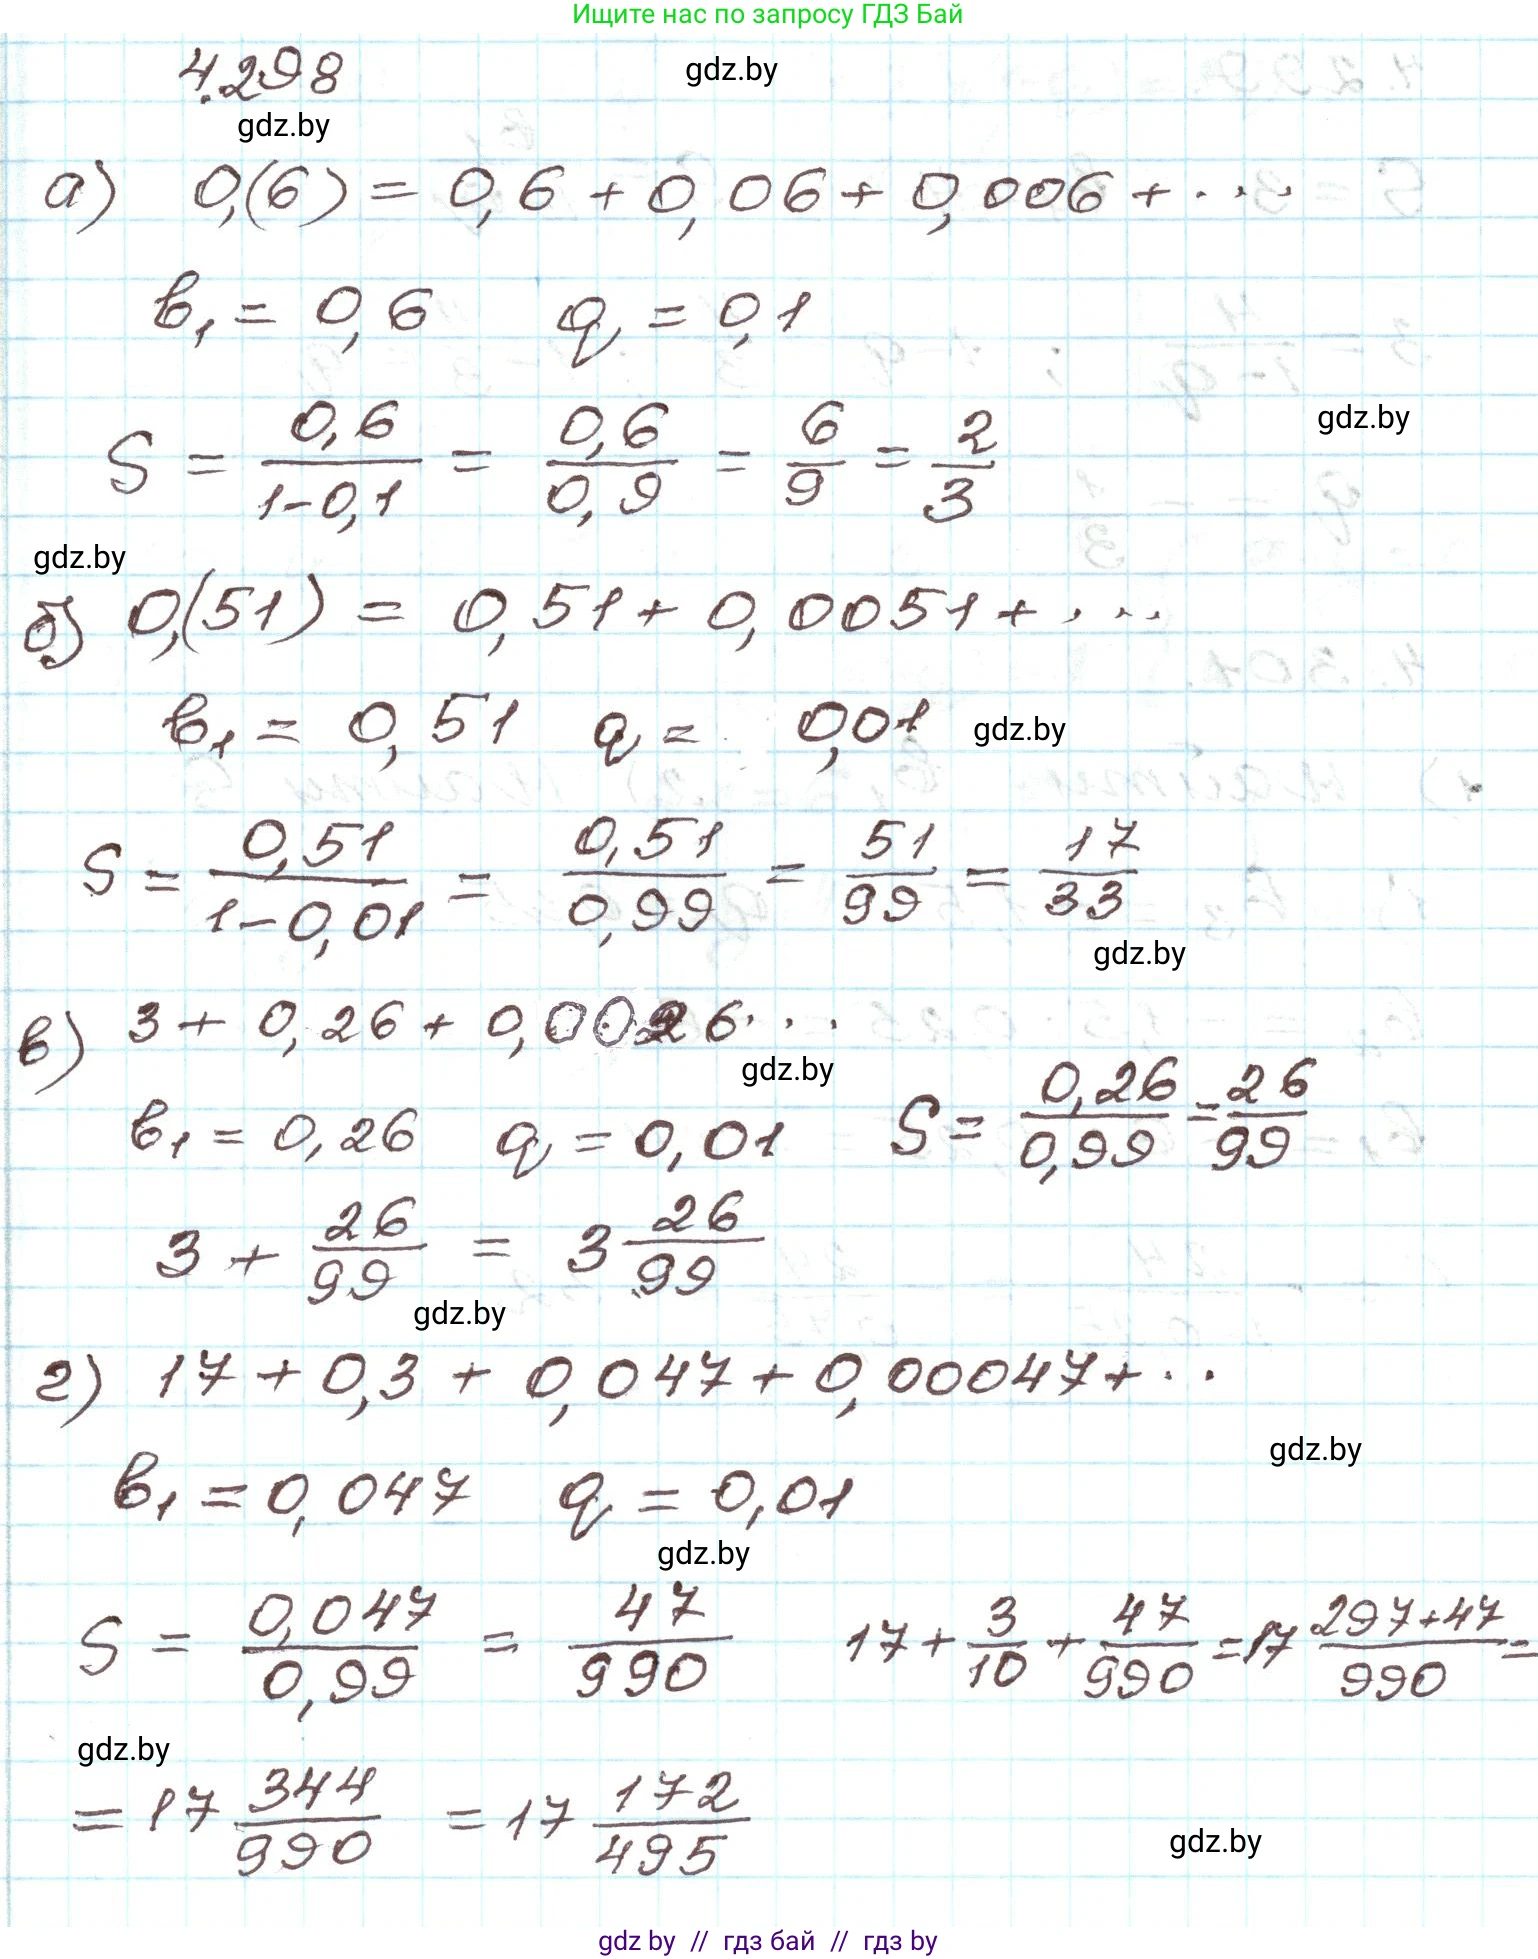 Ищите нас по запросу ГДЗ Бай
4.298
gdz.by
gdz.by
а) 0,(6) = 0,6 + 0,06 + 0,006 + ...
b₁ = 0,6 q = 0,1
S = 0,6/(1-0,1) = 0,6/0,9 = 6/9 = 2/3
gdz.by
gdz.by
б) 0,(51) = 0,51 + 0,0051 + ...
b₁ = 0,51 q = 0,01
gdz.by
S = 0,51/(1-0,01) = 0,51/0,99 = 51/99 = 17/33
gdz.by
в) 3 + 0,26 + 0,0026...
gdz.by
b₁ = 0,26 q = 0,01 S = 0,26/0,99 = 26/99
3 + 26/99 = 3 26/99
gdz.by
г) 17 + 0,3 + 0,047 + 0,00047 + ..
gdz.by
b₁ = 0,047 q = 0,01
gdz.by
S = 0,047/0,99 = 47/990 17 + 3/10 + 47/990 = 17 (297+47)/990 =
gdz.by
= 17 344/990 = 17 172/495
gdz.by
gdz by // гдз бай // гдз by